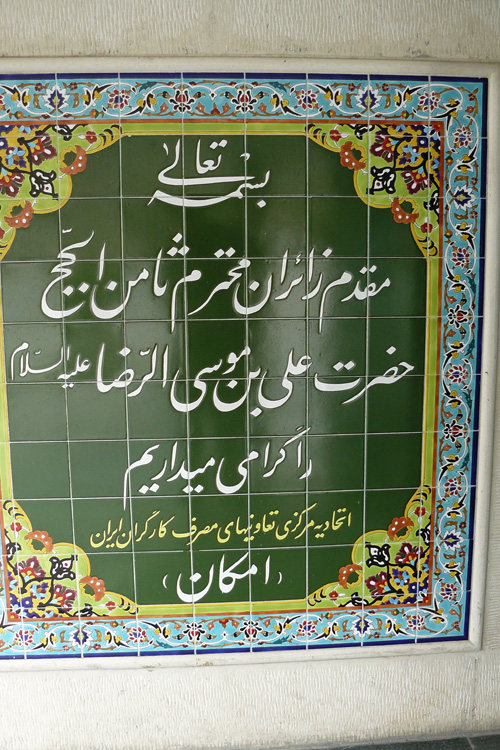 بسمه تعالی
مقدم زائران محترم ثامن الحجج
حضرت علی بن موسی الرّضا علیه السّلام
را گرامی میداریم
اتحادیه مرکزی تعاونیهای مصرف کارگران ایران
(امکان)